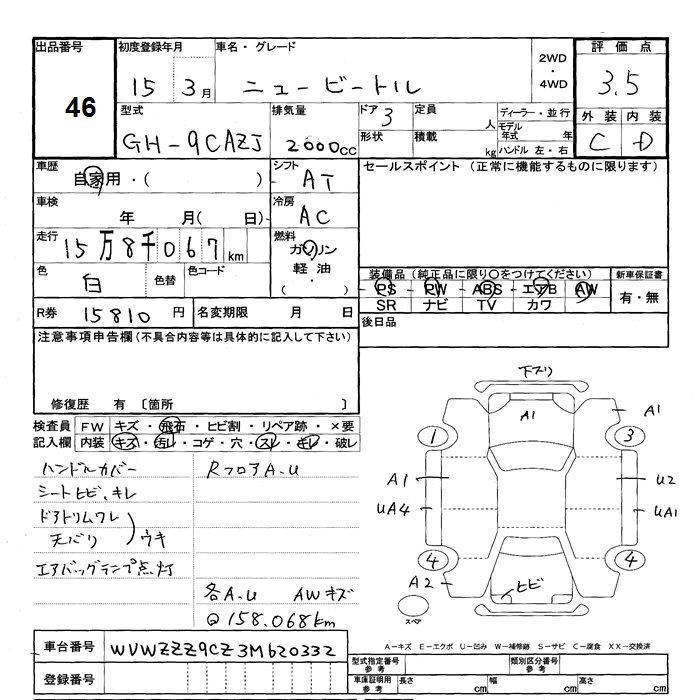 出品番号 初度登録年月 車名・グレード 評価点
46
15 3月 ニュービートル 2WD・4WD 3.5
型式 排気量 ドア 3 定員 人 ディーラー・並行 外装 内装
GH-9CAZJ 2000cc 形状 積載 kg モデル年式 年 ハンドル 左・右 C D
車歴 自家用・( ) シフト AT セールスポイント (正常に機能するものに限ります)
車検 年 月( 日) 冷房 AC
走行 15万8千067km 燃料 ガソリン 軽油 ( ・ )
色 白 色替 色コード 装備品 (純正品に限り○をつけてください) 新車保証書
PS・PW・ABS・エアB・AW 有・無
SR ナビ TV カワ
R券 15810円 名変期限 月 日 後日品
注意事項申告欄(不具合内容等は具体的に記入して下さい)
修復歴 有 〔箇所 〕
検査員 FW キズ・飛石・ヒビ割・リペア跡・×要
記入欄 内装 キズ・汚レ・コゲ・穴・スレ・キレ・破レ
ハンドルカバー RフロアA.U
シートヒビ、キレ
ドアトリムワレ
天バリ ウキ
エアバッグランプ点灯
各A.U AWキズ
@158.068km
下ズリ
A1 A1
1 3
A1 U2
UA4 UA1
4 4
A2 ヒビ
スペア
車台番号 WVWZZZ9CZ3M620332
登録番号
A−キズ E−エクボ U−凹み W−補修跡 S−サビ C−腐食 XX−交換済
型式指定番号 参考 類別区分番号 参考
車庫証明用 参考 長さ cm 幅 cm 高さ cm